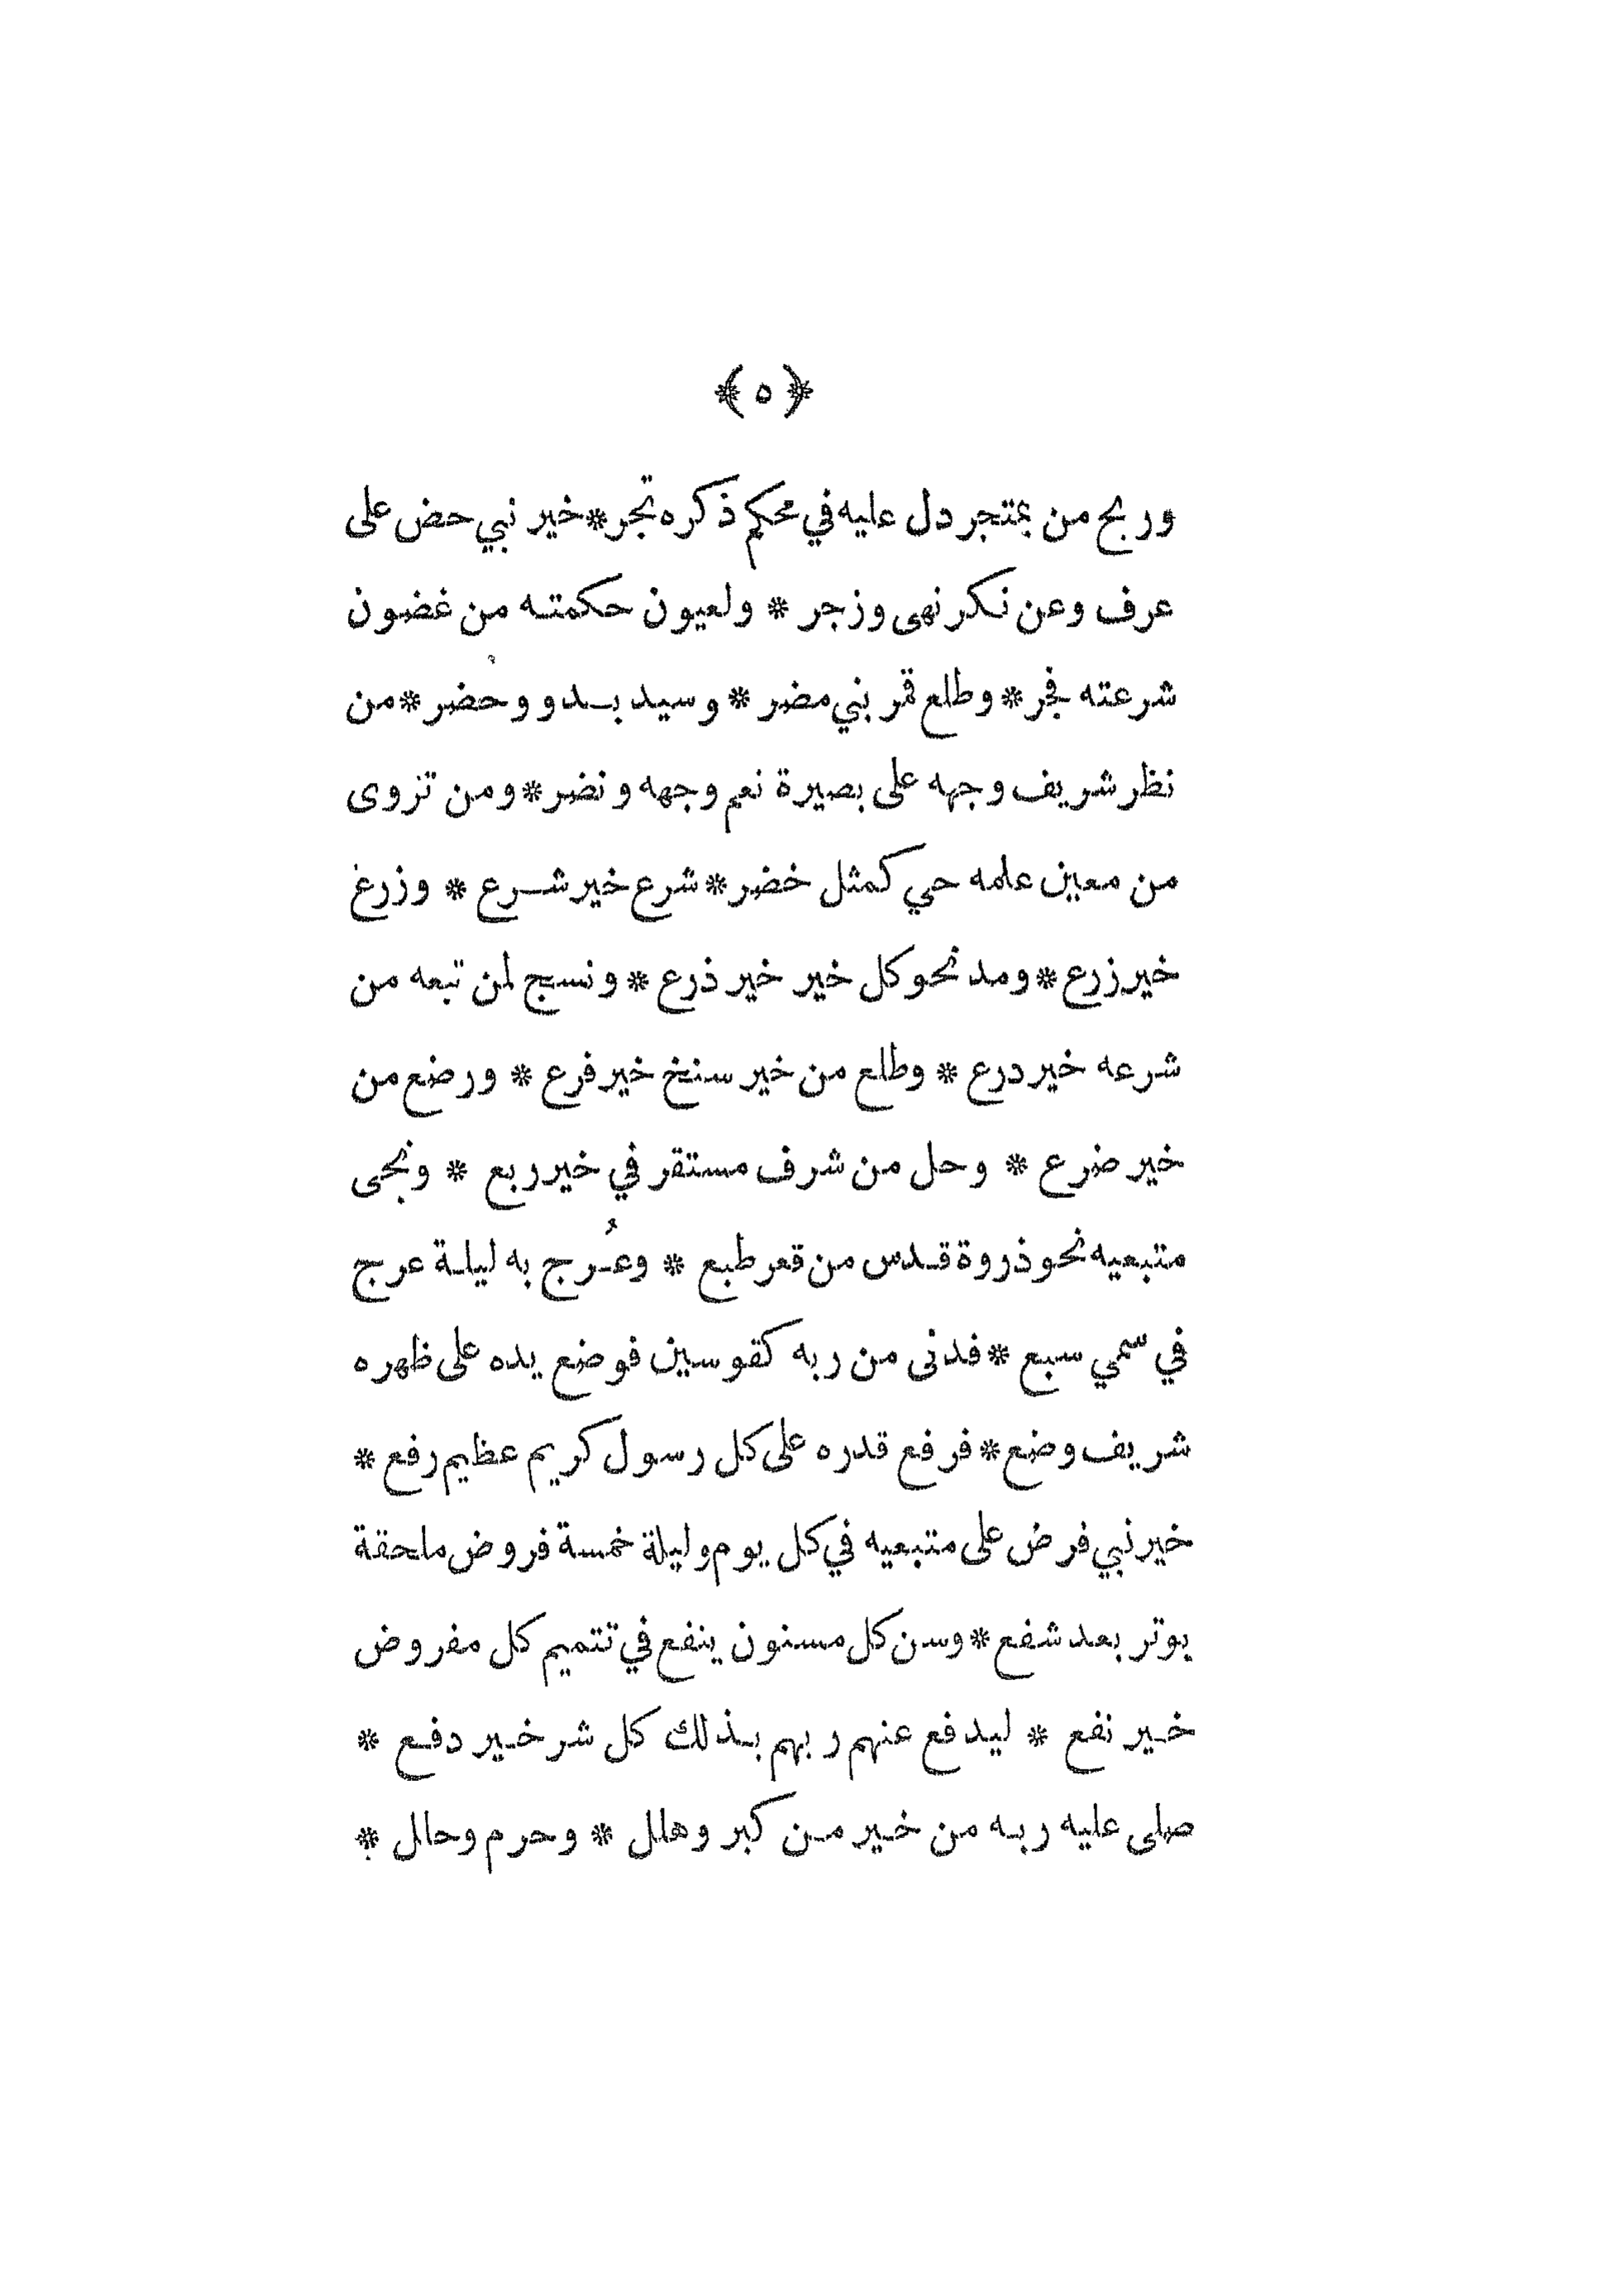 ﴿ ٥ ﴾
وربح من بمتجر دل عليه في محكم ذكره تجر * خير نبي حض على
عرف وعن نكر نهى وزجر * ولعيون حكمته من غضون
شرعته فجر * وطلع قمر بني مضر * وسيد بدو وحضر * من
نظر شريف وجهه على بصيرة نعم وجهه ونضر * ومن تزوى
من معين علمه حي كمثل خضر * شرع خير شرع * وزرع
خير زرع * ومد نحو كل خير خير ذرع * ونسج لمن تبعه من
شرعه خير درع * وطلع من خير سنخ خير فرع * ورضع من
خير ضرع * وحل من شرف مستقر في خير ربع * ونجى
متبعيه نحو ذروة قدس من قعر طبع * وعُرج به ليلة عرج
في سمي سبع * فدنى من ربه كقوسين فوضع يده على ظهره
شريف وضع * فرفع قدره على كل رسول كريم عظيم رفع *
خير نبي فرض على متبعيه في كل يوم وليلة خمسة فروض ملحقة
بوتر بعد شفع * وسن كل مسنون ينفع في تتميم كل مفروض
خير نفع * ليدفع عنهم ربهم بذلك كل شر خير دفع *
صلى عليه ربه من خير من كبر وهلل * وحرم وحلل *